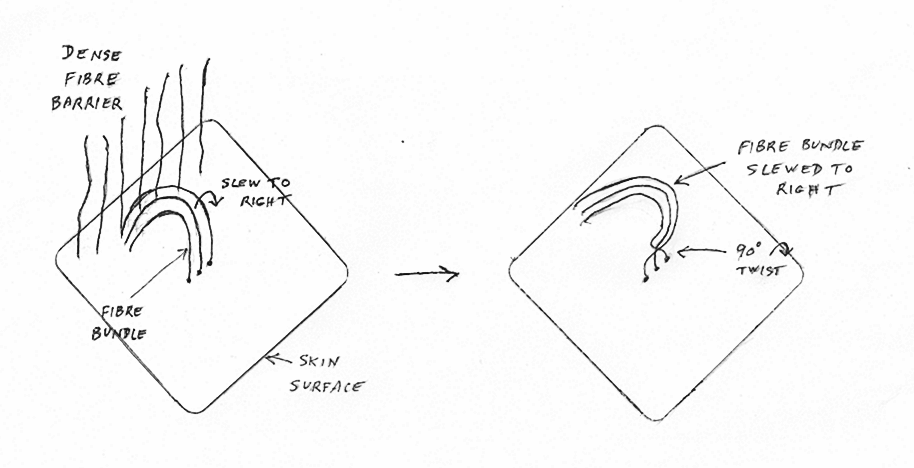 DENSE
FIBRE
BARRIER
SLEW TO
RIGHT
FIBRE
BUNDLE
SKIN
SURFACE
FIBRE BUNDLE
SLEWED TO
RIGHT
90°
TWIST